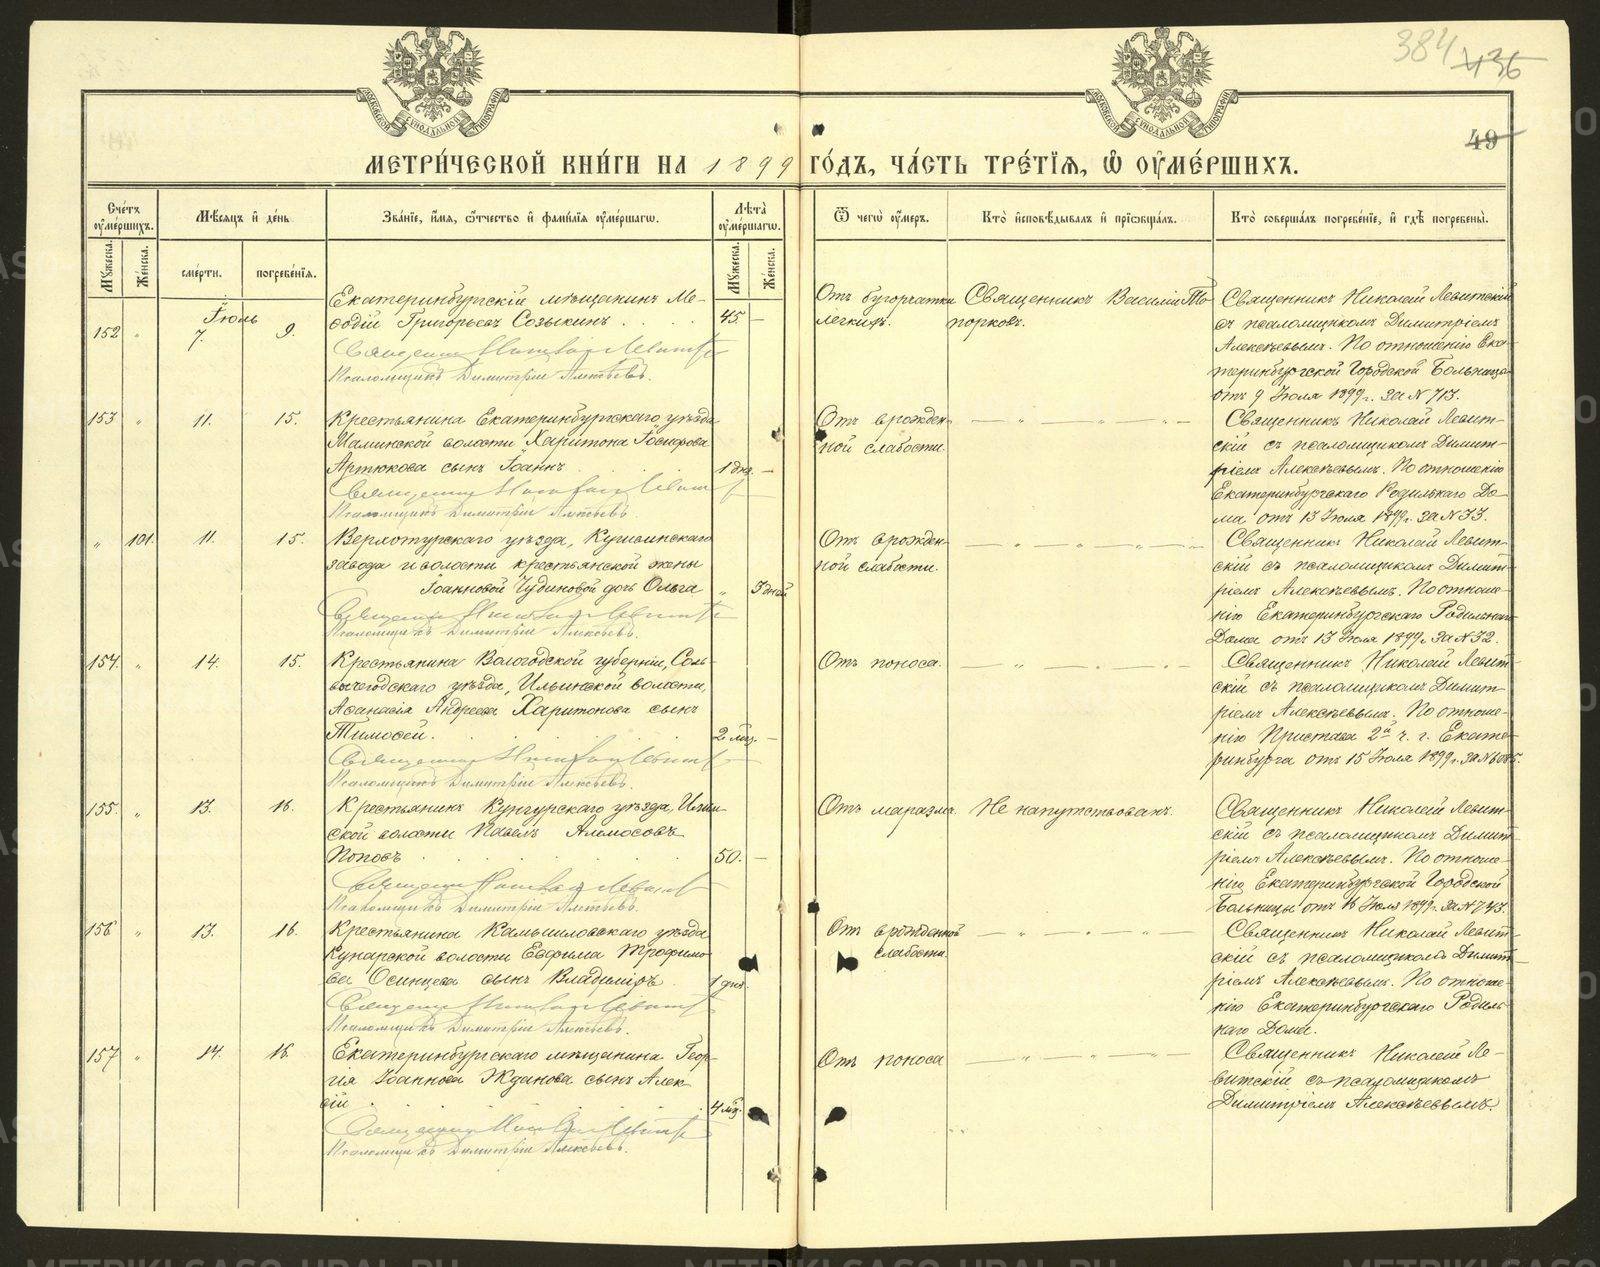 384 436
49
МЕТРИ́ЧЕСКОЙ КНИ́ГИ НА 1899 ГО́ДЪ, ЧА́СТЬ ТРЕ́ТЇѦ, Ѽ ОУ҆МЕ́РШИХЪ.
Счётъ оу҆ме́ршихъ.
Мѣсяцъ и҆ де́нь
Зва́нїе, и҆́мѧ, ѻ҆́тчество и҆ фамилїѧ оу҆ме́ршагѡ.
Лѣта̀ оу҆ме́ршагѡ.
Ѿ чегѡ̀ оу҆́меръ.
Кто̀ и҆сповѣ́дывалъ и҆ прїѡбща́лъ.
Кто̀ соверша́лъ погребе́нїе, и҆ гдѣ̀ погребены̀.
Мꙋ́жеска. Же́нска. сме́рти. погребе́нїѧ. Мꙋ́жеска. Же́нска.
152 " Іюль 7. 9.
Екатеринбургскій мѣщанинъ Ме-
ѳодій Григорьевъ Созыкинъ . . . . 45. —
Священникъ Николай Левитскій
Псаломщикъ Димитрій Алексѣевъ.
Отъ бугорчатки
легкихъ.
Священникъ Василій То-
порковъ.
Священникъ Николай Левитскій
съ псаломщикомъ Димитріемъ
Алексѣевымъ. По отношенію Ека-
теринбургской Городской Больницы
отъ 9 Іюля 1899 г. за № 713.
153 " 11. 15.
Крестьянина Екатеринбургскаго уѣзда
Маминской волости Харитона Іосифова
Артюкова сынъ Іоаннъ . . . . 1 дня. —
Священникъ Николай Левитскій
Псаломщикъ Димитрій Алексѣевъ.
Отъ врожден-
ной слабости.
— " — " — " —
Священникъ Николай Левит-
скій съ псаломщикомъ Димит-
ріемъ Алексѣевымъ. По отношенію
Екатеринбургскаго Родильнаго До-
ма отъ 13 Іюля 1899 г. за № 33.
" 101. 11. 15.
Верхотурскаго уѣзда, Кушвинскаго
завода и волости крестьянской жены
Іоанновой Чудиновой дочь Ольга " 5 дней
Священникъ Николай Левитскій
Псаломщикъ Димитрій Алексѣевъ.
Отъ врожден-
ной слабости.
— " — " — " —
Священникъ Николай Левит-
скій съ псаломщикомъ Димит-
ріемъ Алексѣевымъ. По отноше-
нію Екатеринбургскаго Родильнаго
Дома отъ 13 Іюля 1899 г. за № 32.
154. " 14. 15.
Крестьянина Вологодской губерніи, Соль-
вычегодскаго уѣзда, Ильинской волости,
Аѳанасія Андреева Харитонова сынъ
Тимоѳей. . . . . . 2 мѣс. —
Священникъ Николай Левитскій
Псаломщикъ Димитрій Алексѣевъ.
Отъ поноса.
— " — " — " —
Священникъ Николай Левит-
скій съ псаломщикомъ Димит-
ріемъ Алексѣевымъ. По отноше-
нію Пристава 2й ч. г. Екате-
ринбурга отъ 15 Іюля 1899 г. за №
155. " 13. 16.
Крестьянинъ Кунгурскаго уѣзда, Ильин-
ской волости Павелъ
Поповъ . . . . . . 50. —
Священникъ Николай Левитскій
Псаломщикъ Димитрій Алексѣевъ.
Отъ маразма.
Не напутствованъ.
Священникъ Николай Левит-
скій съ псаломщикомъ Димит-
ріемъ Алексѣевымъ. По отноше-
нію Екатеринбургской Городской
Больницы отъ 16 Іюля 1899 г. за № 743.
156 " 13. 16.
Крестьянина Камышловскаго уѣзда
Кунарской волости Евфима Трофимо-
ва Осинцева сынъ Владиміръ . 1 дня.
Священникъ Николай Левитскій
Псаломщикъ Димитрій Алексѣевъ.
Отъ врожденной
слабости.
— " — " — " —
Священникъ Николай Левит-
скій съ псаломщикомъ Димит-
ріемъ Алексѣевымъ. По отноше-
нію Екатеринбургскаго Родиль-
наго Дома.
157 " 14. 16.
Екатеринбургскаго мѣщанина Геор-
гія Іоаннова Жданова сынъ Алек-
сій . . . . . . 4 мѣс.
Священникъ Николай Левитскій
Псаломщикъ Димитрій Алексѣевъ.
Отъ поноса
— " — " — " —
Священникъ Николай Ле-
витскій съ псаломщикомъ
Димитріемъ Алексѣевымъ.